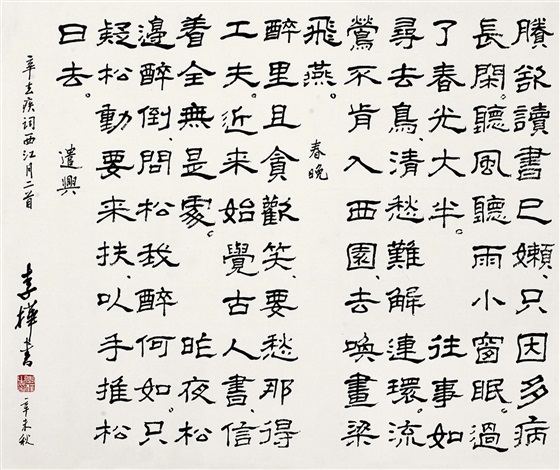 賸欲讀書已嬾、只因多病
長閑。聽風聽雨小窗眠。過
了春光大半。 往事如
尋去鳥、清愁難解連環。流
鶯不肯入西園去喚畫梁
飛燕。
春晚
醉里且貪歡笑、要愁那得
工夫。近來始覺古人書、信
着全無是處。 昨夜松
邊醉倒、問松我醉何如。只
疑松動要來扶、以手推松
曰去。
遣興
辛弃疾詞西江月二首
李樺書
辛未秋